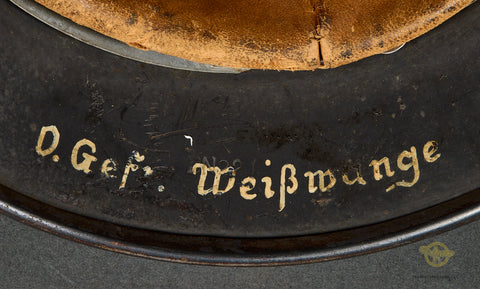 O. Gefr. Weißwange